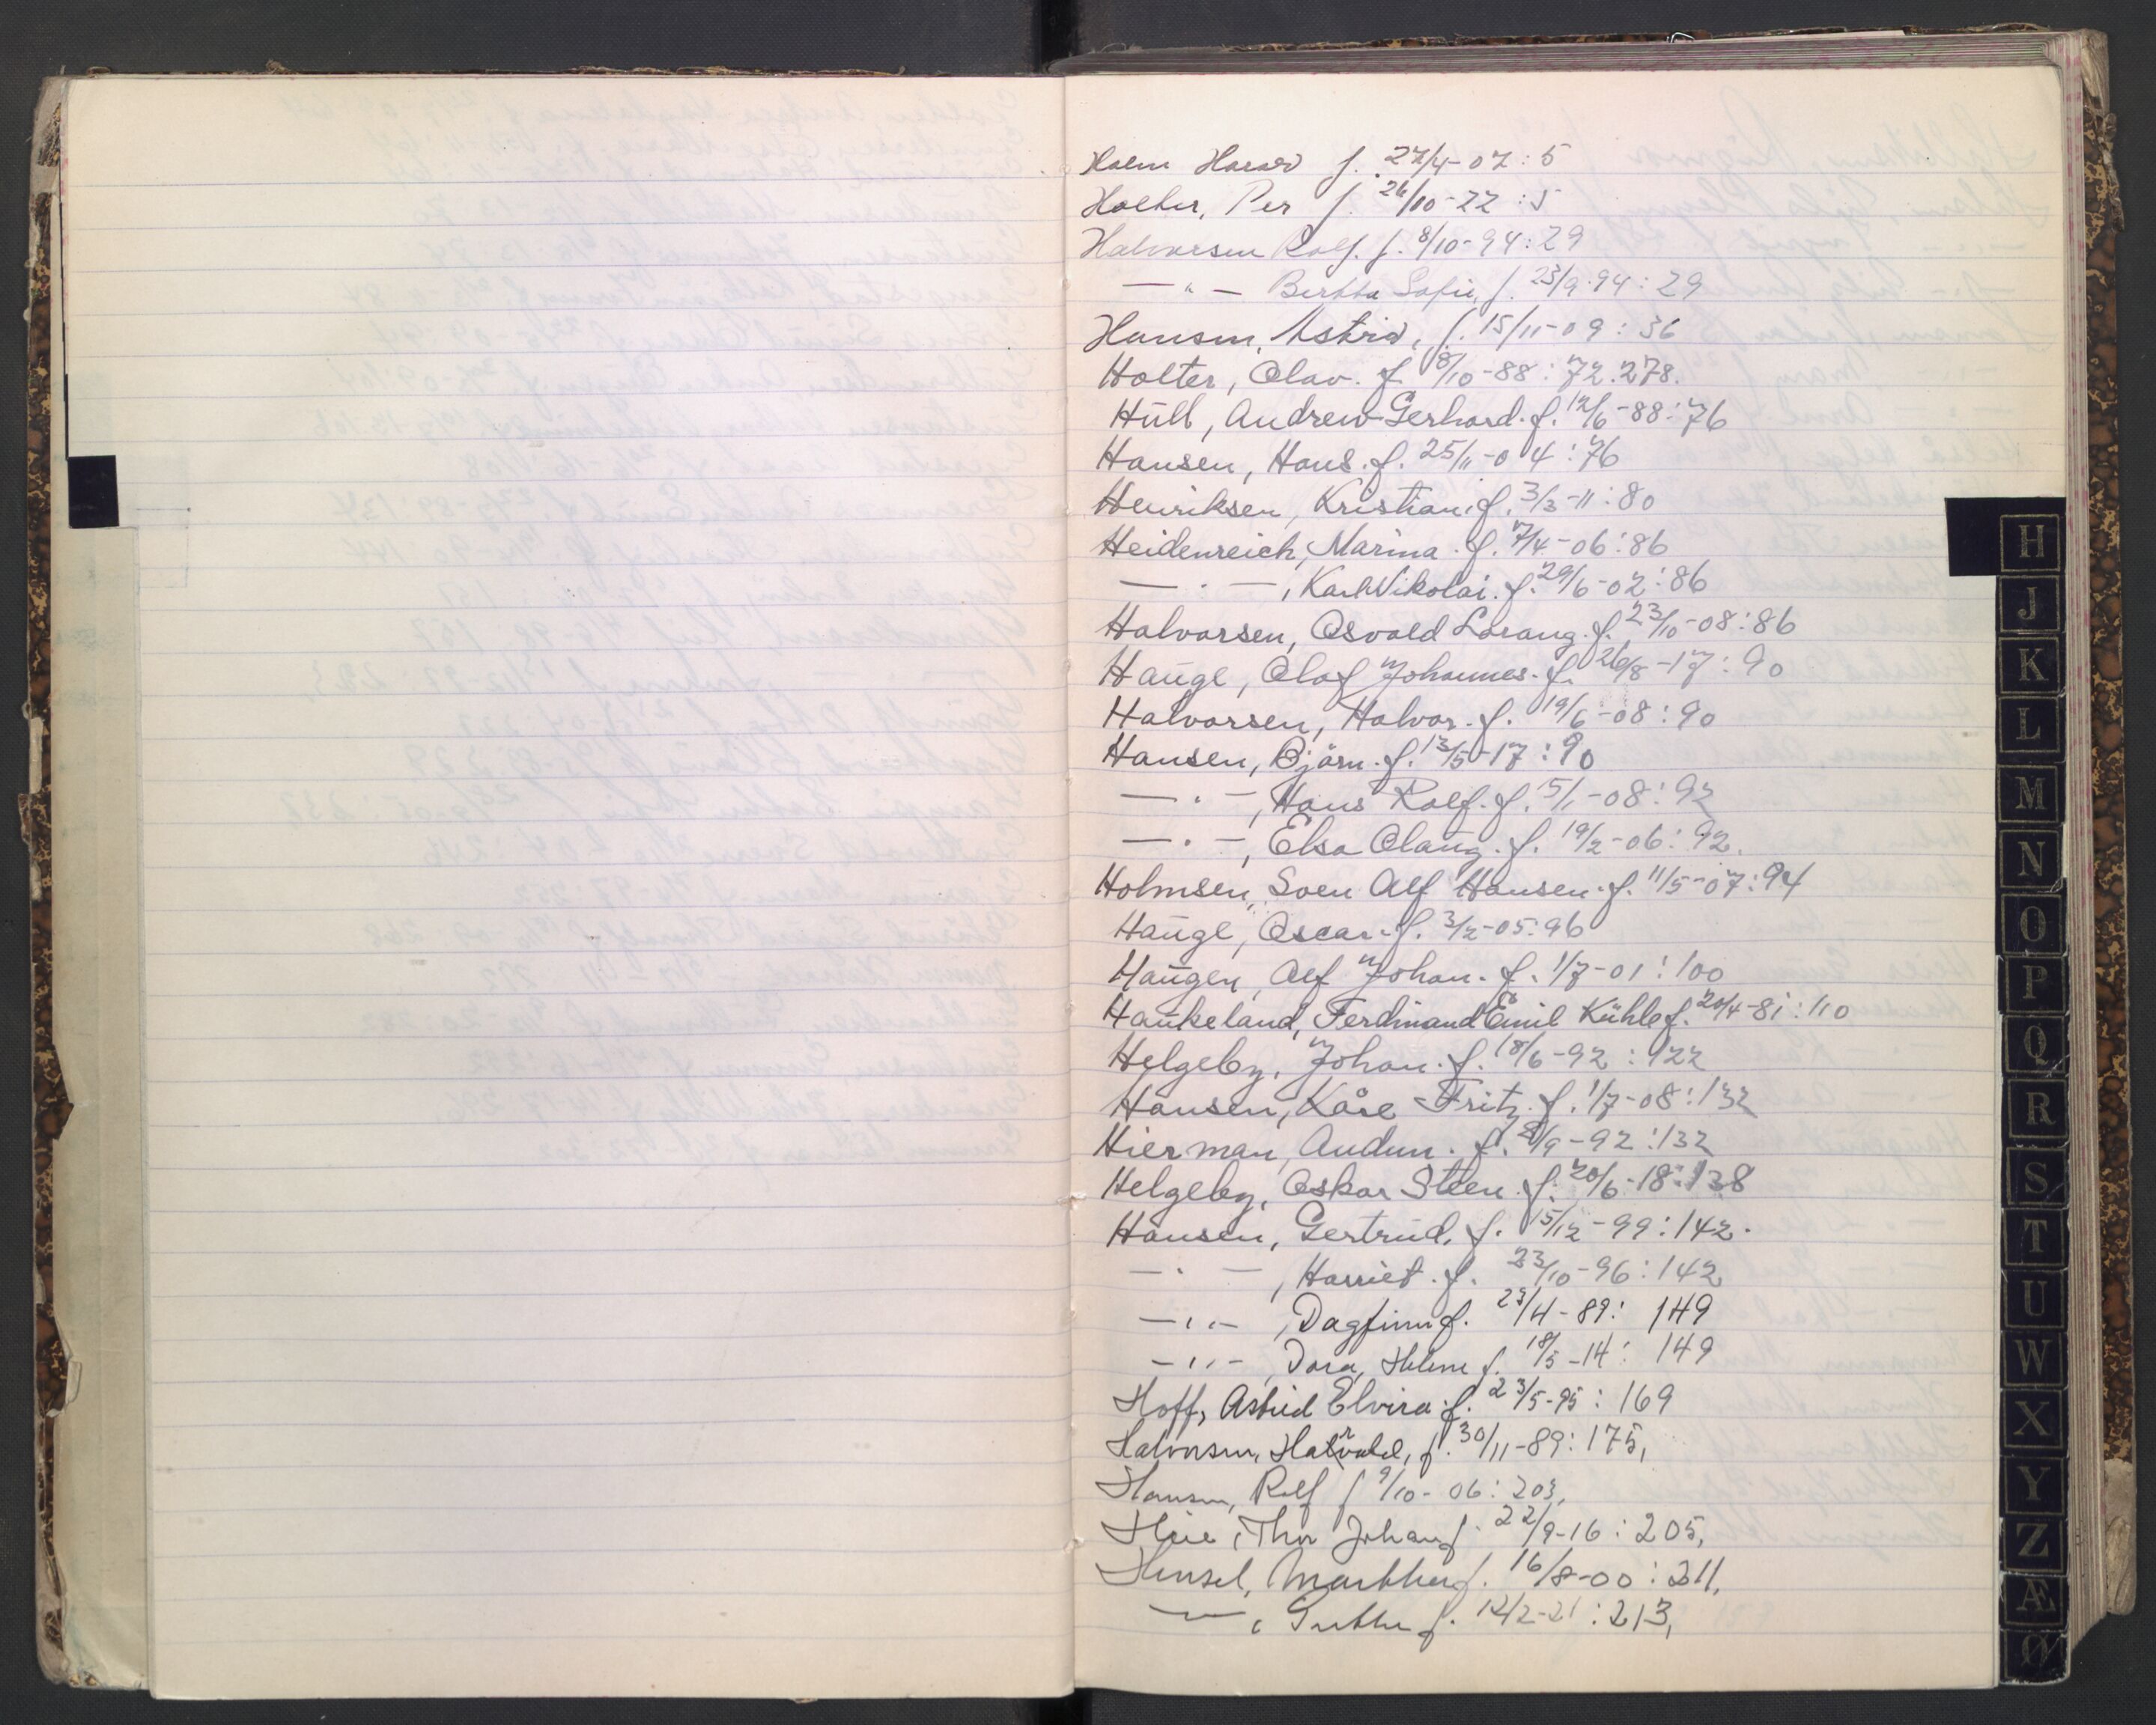 Holm Harald f. 27/4-07 : 5
Holter, Per f. 26/10-22 : 5
Halvorsen Rolf. f. 8/10-94 : 29
— " — Bertha Sofie, f. 23/9-94 : 29
Hansen, Astrid, f. 15/11-09 : 36
Holter, Olav. f. 8/10-88 : 72. 278.
Hüll, Andrew Gerhard. f. 12/6-88 : 76
Hansen, Hans. f. 25/11-04 : 76
Henriksen, Kristian. f. 3/3-11 : 80
Heidenreich, Marina. f. 7/4-06 : 86
— " —, Karl Nikolai. f. 29/6-02 : 86
Halvorsen, Osvald Lorang. f. 23/10-08 : 86
Hauge, Olaf Johannes. f. 26/8-17 : 90
Halvorsen, Halvor. f. 19/6-08 : 90
Hansen, Björn. f. 13/5-17 : 90
— " —, Hans Rolf. f. 5/1-08 : 92
— " —, Elsa Olaug. f. 19/2-06 : 92.
Holmsen, Sven Alf Hansen. f. 11/5-07 : 94
Hauge, Oscar. f. 3/2-05 : 96
Haugen, Alf Johan. f. 1/7-01 : 100
Haukeland, Ferdinand Emil Kühle f. 20/4-81 : 110
Helgeby, Johan. f. 18/6-92 : 122
Hansen, Kåre Fritz. f. 1/7-08 : 132
Hierman, Audun. f. /9-92 : 132
Helgeby, Oskar Steen. f. 20/6-18 : 138
Hansen, Gertrud. f. 15/12-99 : 142.
— " —, Harriet. f. 23/10-96 : 142
— " —, Dagfinn f. 23/4-89 : 149
— " —, Dora, Helene f. 18/5-14 : 149
Hoff, Astrid Elvira f. 23/5-95 : 169
Halvorsen, f. 30/11-89 : 175,
Hansen, Rolf f 9/10-06 : 203,
Hoie, Thor Johan f. 22/9-16 : 205,
Hensel, f. 16/8-00 : 211,
— " —, f. 12/2-21 : 213,
H
J
K
L
M
N
O
P
Q
R
S
T
U
W
X
Y
Z
Æ
Ø